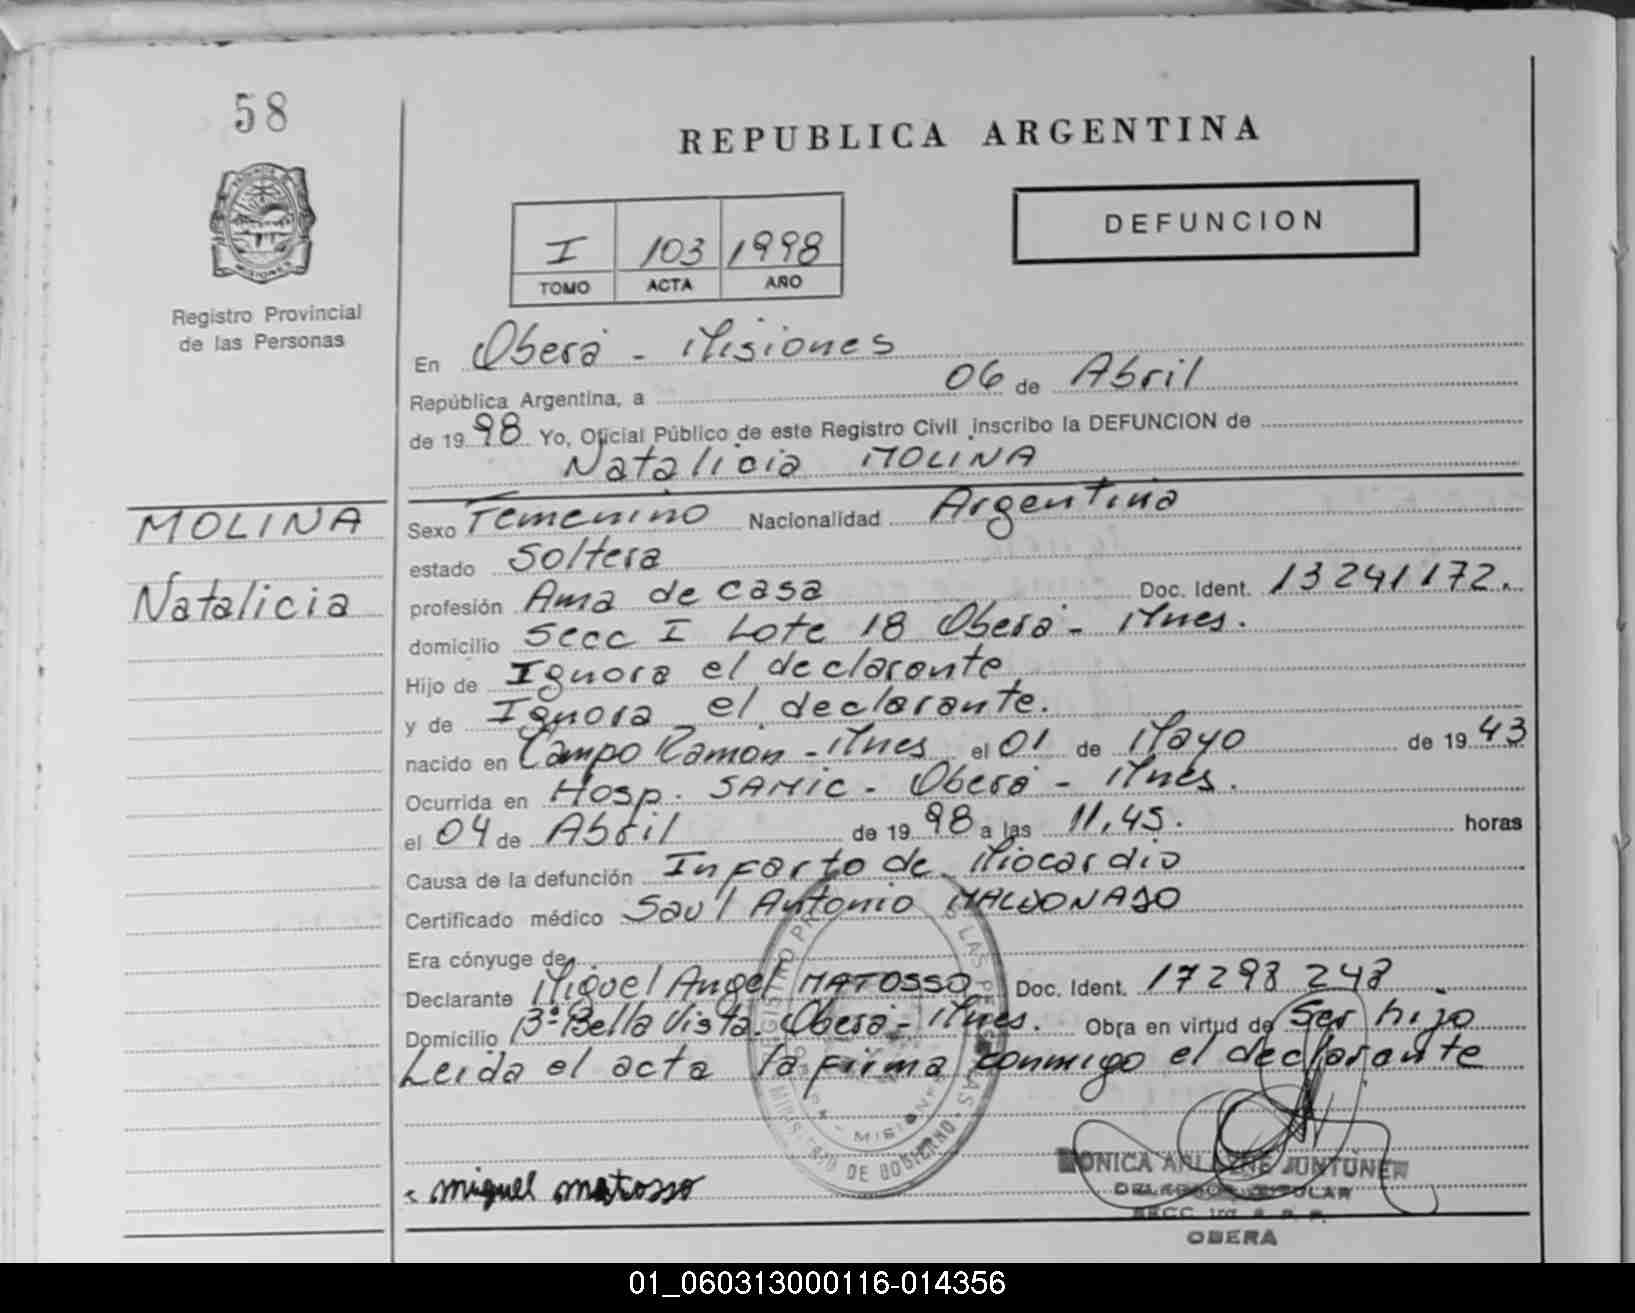 58
REPUBLICA ARGENTINA
MISIONES
Registro Provincial
de las Personas
I 103 1998
TOMO ACTA AÑO
DEFUNCION
En Oberá - Misiones
República Argentina, a 06 de Abril
de 1998 Yo, Oficial Público de este Registro Civil inscribo la DEFUNCION de
Natalicia MOLINA
MOLINA
Natalicia
Sexo Femenino Nacionalidad Argentina
estado Soltera
profesión Ama de casa Doc. Ident. 13241172.
domicilio Secc I Lote 18 Oberá - Mnes.
Hijo de Ignora el declarante
y de Ignora el declarante.
nacido en Campo Ramón - Mnes el 01 de Mayo de 1943
Ocurrida en Hosp. SAMIC - Oberá - Mnes.
el 04 de Abril de 1998 a las 11,45. horas
Causa de la defunción Infarto de Miocardio
Certificado médico Saul Antonio MALDONADO
Era cónyuge de
Declarante Miguel Angel MATOSSO Doc. Ident. 17298248
Domicilio Bº Bella Vista. Oberá - Mnes. Obra en virtud de Ser hijo
Leida el acta la firma conmigo el declarante
MINISTERIO DE GOBIERNO
MISIONES
miguel matosso
MONICA JUNTUNEN
TITULAR
OBERA
01_060313000116-014356